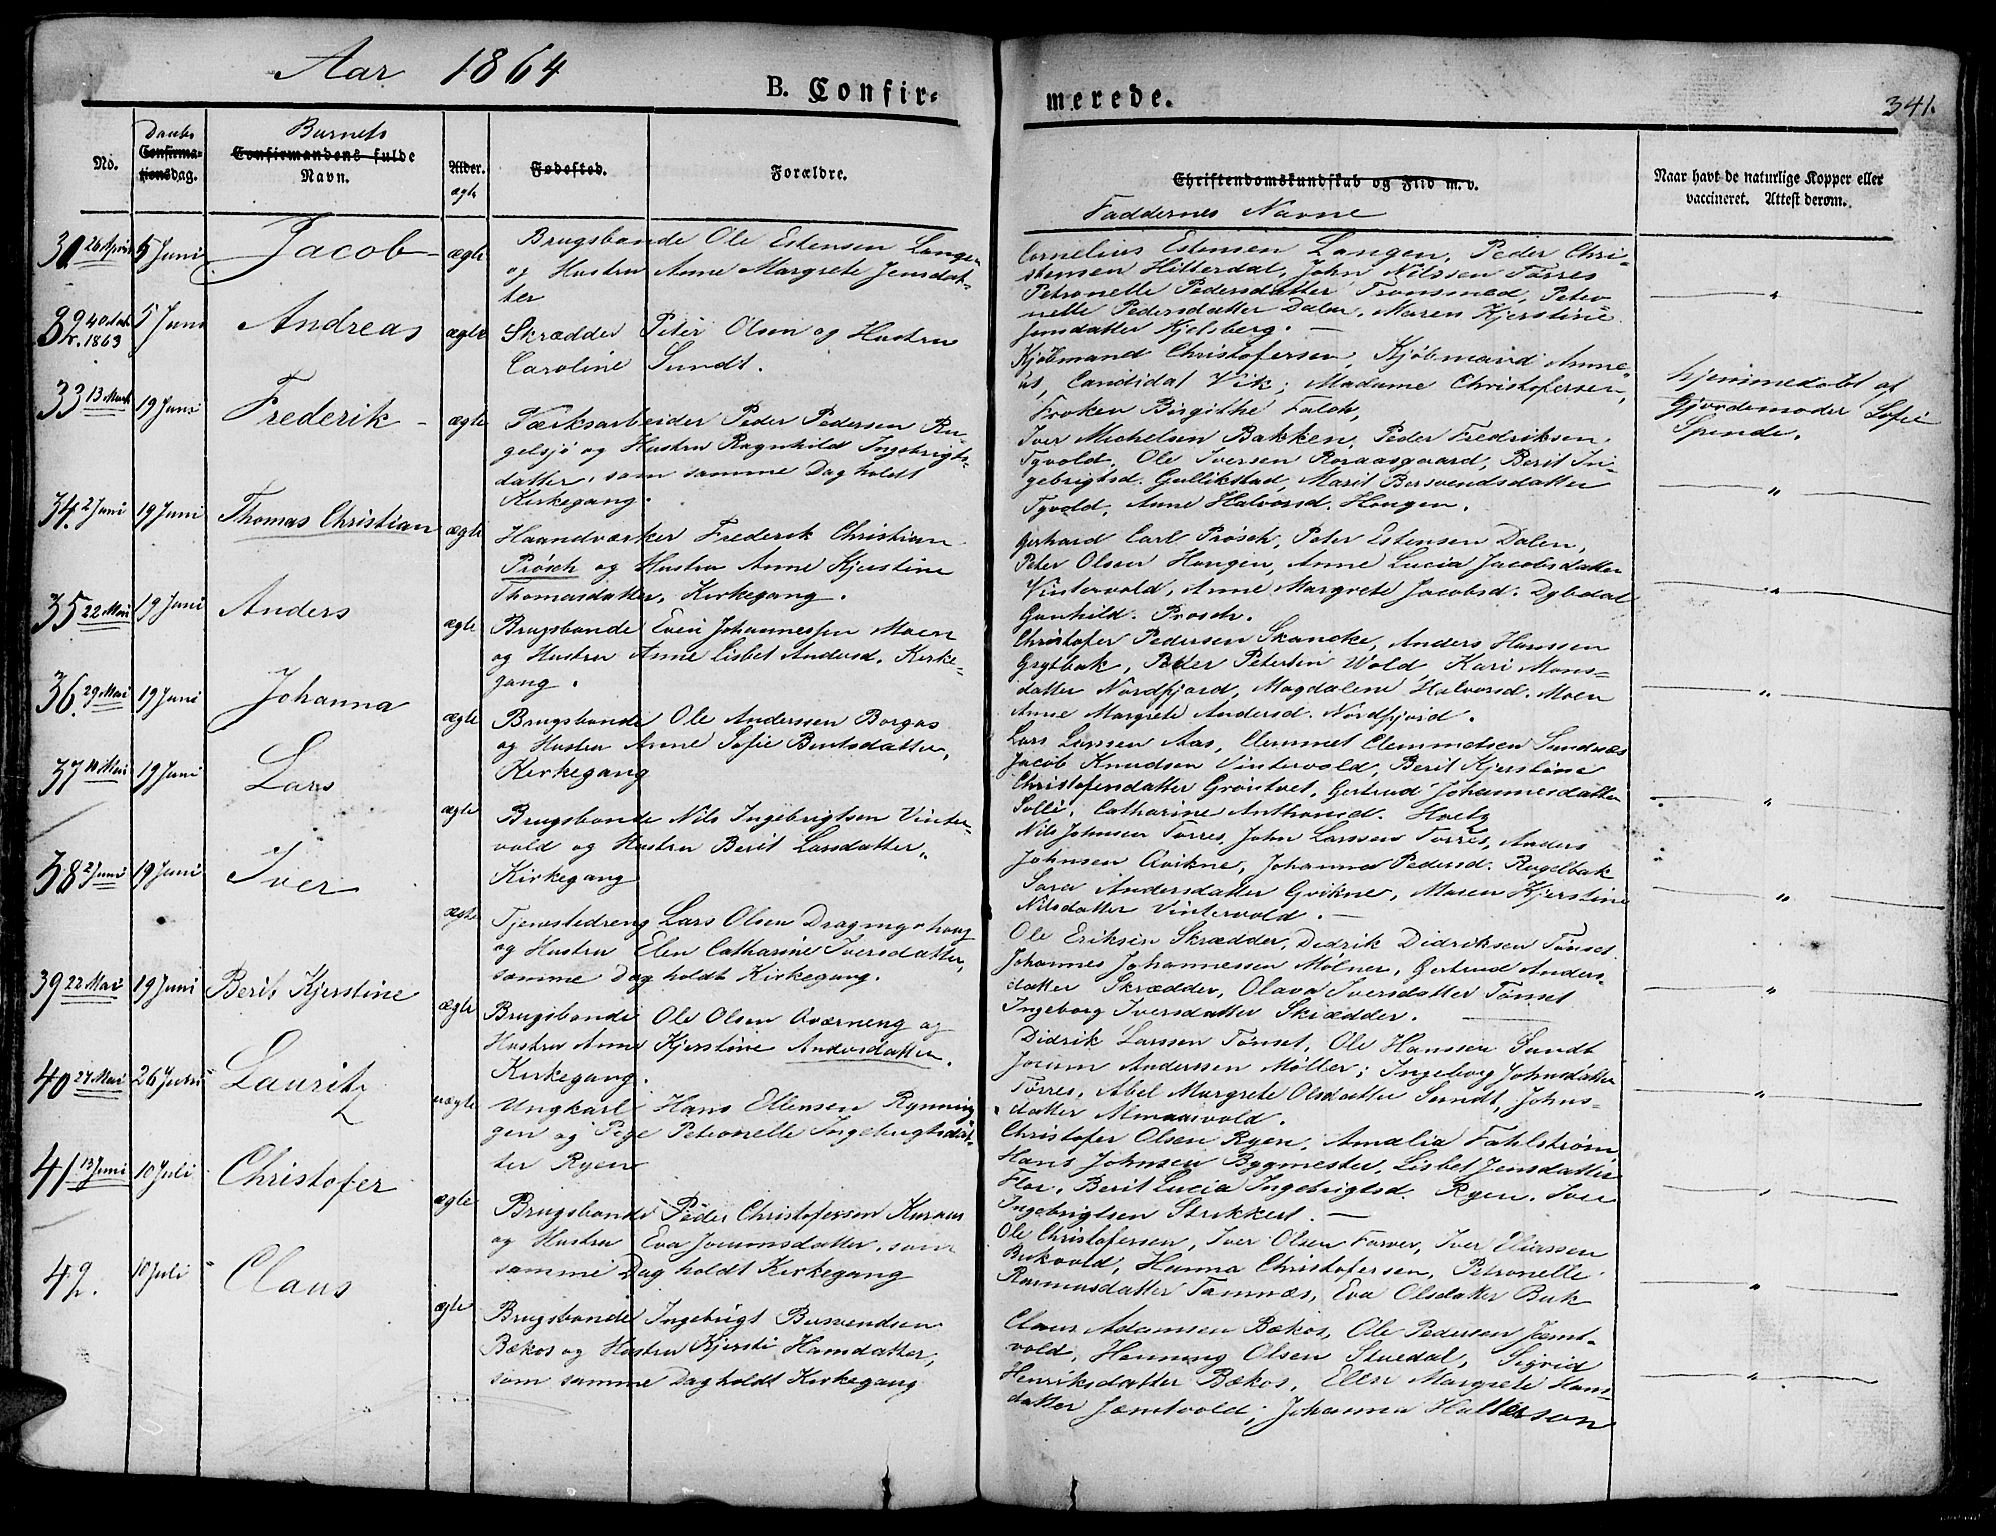 Aar 1864
B. Confir-
merede.
341.
No.
Daabs
Confirma-
tionsdag.
Barnets
Confirmandens fulde
Navn.
Alder.
ægte
Fødested.
Forældre.
Christendomskundskab og Flid m. v.
Faddernes Navne
Naar havt de naturlige Kopper eller
vaccineret. Attest derom.
31 26 April 5 Juni Jacob ægte
Brugsbonde Ole Estensen Langen
og Hustru Anne Margrete Jensdat-
ter
Cornelius Estensen Langen, Peder Chri-
stensen Hitterdal, John Nilssen Tørres
Petronelle Pedersdatter Tronsmed, Petro-
nelle Pedersdatter Dalen, Maren Kjerstine
Jensdatter Kjelsberg.
32 1863 5 Juni Andreas ægte
Skrædder Peter Olsen og Hustru
Caroline Sundt.
Kjøbmand Christofersen, Kjøbmand Anne-
us, Candidat Vik, Madame Christofersen,
Frøken Birgithe Falch,
hjemmedøbt af
Gjordemoder Sofie
Spende.
33 13 Mart 19 Juni Frederik ægte
Værksarbeider Peder Pedersen Ru-
gelsjø og Hustru Ragnhild Ingebrigts-
datter, som samme Dag holdt
Kirkegang.
Iver Michelsen Bakken, Peder Fredriksen
Tyvold, Ole Iversen Roraasgaard, Berit In-
gebrigtsd. Gullikstad, Marit Bersvendsdatter
Tyvold, Anne Halvorsd. Hongen.
34. 2 Juni 19 Juni Thomas Christian ægte
Haandværker Frederik Christian
Prøsch og Hustru Anne Kjerstine
Thomasdatter, Kirkegang.
Gerhard Carl Prøsch, Peter Estensen Dalen,
Peter Olsen Hongen, Anne Lucia Jacobsdatter
Vintervold, Anne Margrete Jacobsd. Dybdal
Gunhild Prøsch.
35 22 Mai 19 Juni Anders ægte
Brugsbonde Even Johannessen Moen
og Hustru Anne Lisbet Andersd. Kirke-
gang.
Christofer Pedersen Skancke, Anders Hanssen
Grytbak, Peder Petersen Wold, Kari Mons-
datter Nordfjord, Magdalene Halvorsd. Moen
Anne Margrete Andersd. Nordfjord.
36. 29 Mai 19 Juni Johanna ægte
Brugsbonde Ole Anderssen Borgos
og Hustru Anne Sofie Bentsdatter,
Kirkegang
Lars Larssen Aas, Clemmet Clemmetsen Sundnæs
Jacob Knudsen Vintervold, Berit Kjerstine
Christofersdatter Grøntvet, Gertrud Johannesdatter
Solli, Catharine Anthonid. Holtz
37 Mai 19 Juni Lars ægte
Brugsbonde Nils Ingebrigtsen Vinter-
vold og Hustru Berit Larsdatter,
Kirkegang
Nils Johnsen Tørres, John Larssen Tørres, Anders
Johnsen Qvikne, Johanna Pedersd. Rugelbak
Sara Andersdatter Qvikne, Maren Kjerstine
Nilsdatter Vintervold.
38 2 Juni 19 Juni Iver ægte
Tjenestedreng Lars Olsen
og Hustru Elen Catharine Iversdatter,
samme Dag holdt Kirkegang.
Ole Eriksen Skrædder, Didrik Didriksen Tønset
Johannes Johannessen Mølner, Gertrud Anders-
datter Skrædder, Olava Iversdatter Tønset
Ingeborg Iversdatter Skrædder.
39 22 Mai 19 Juni Berit Kjerstine ægte
Brugsbonde Ole Olsen Qværneng og
Hustru Anne Kjerstine Andersdatter.
Kirkegang.
Didrik Larssen Tønset, Ole Hanssen Sundt
Jocum Anderssen Møller, Ingeborg Johnsdatter
Tørres, Abel Margrete Olsdatter Sundt, Johns-
datter Almaasvold.
40 27 Mai 26 Juni Lauritz uægte
Ungkarl Hans Ellensen Rynning
gen og Pige Petronelle Ingebrigtsdat-
ter Ryen
Christofer Olsen Ryen, Amalia Fahlstrøm
Hans Johnsen Bygmester, Lisbet Jensdatter
Flor, Berit Lucia Ingebrigtsd. Ryen, Iver
Ingebrigtsen Strikkert.
41 13 Juni 10 Juli Christofer ægte
Brugsbonde Peder Christofersen Kuraas
og Hustru Eva Jocumsdatter, som
samme Dag holdt Kirkegang
Ole Christofersen, Iver Olsen Farver, Iver Eliassen
Bukvold, Hanna Christofersen, Petronelle
Rasmusdatter Tamnæs, Eva Olsdatter Buk
42. 10 Juli Claus ægte
Brugsbonde Ingebrigt Bersvendsen
Bækos og Hustru Kjersti Hansdatter,
som samme Dag holdt Kirkegang
Claus Adamsen Bækos, Ole Pedersen Jæmt-
vold, Henning Olsen Stuedal, Sigrid
Henriksdatter Bækos, Elen Margrete Hans-
datter Jæmtvold, Johanna Halterson